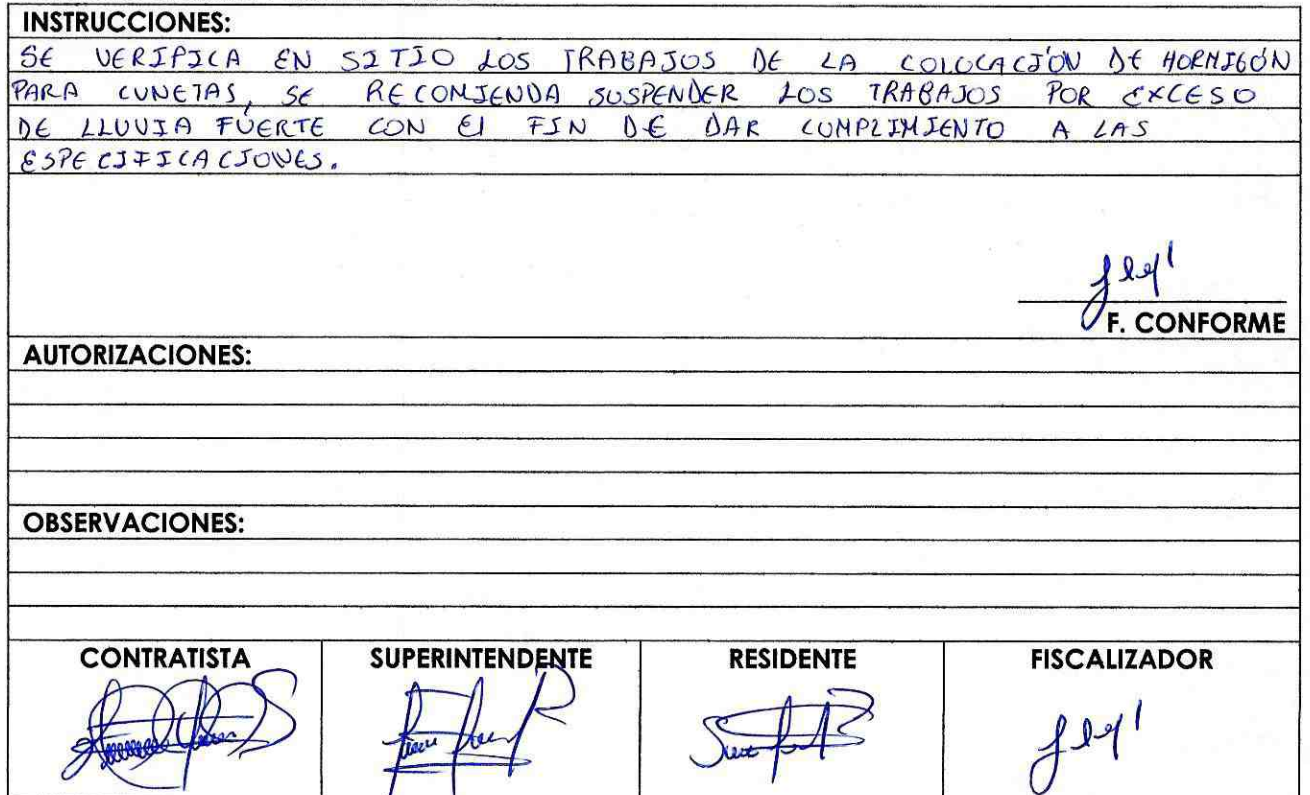 INSTRUCCIONES:
SE VERIFICA EN SITIO LOS TRABAJOS DE LA COLOCACIÓN DE HORMIGÓN
PARA CUNETAS, SE RECOMIENDA SUSPENDER LOS TRABAJOS POR EXCESO
DE LLUVIA FÚERTE CON El FIN DE DAR CUMPLIMIENTO A LAS
ESPECIFICACIONES.
F. CONFORME
AUTORIZACIONES:
OBSERVACIONES:
CONTRATISTA SUPERINTENDENTE RESIDENTE FISCALIZADOR